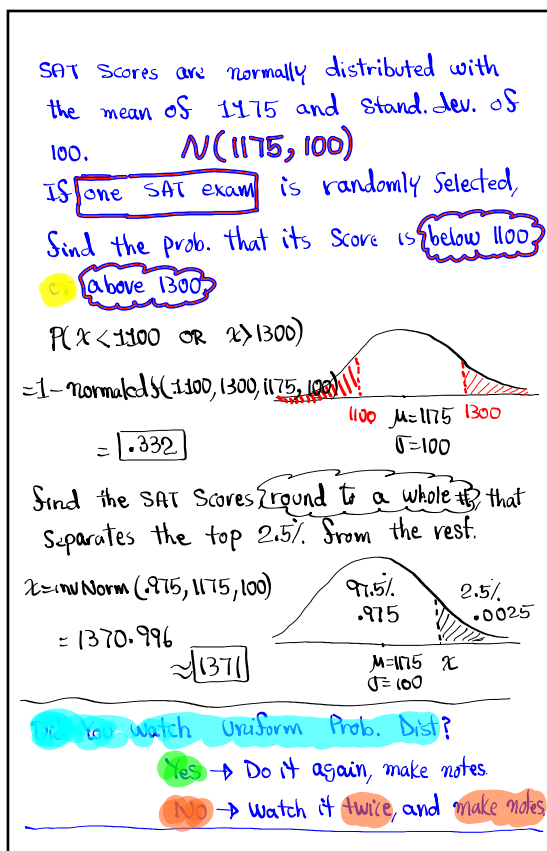 SAT Scores are normally distributed with
the mean of 1175 and Stand. dev. of
100. N(1175, 100)
If one SAT exam is randomly Selected,
find the prob. that its Score is below 1100
or above 1300.
P(x < 1100 OR x > 1300)
=1-normalcdf(1100, 1300, 1175, 100)
1100 μ=1175 1300
= .332 σ=100
find the SAT Scores, round to a whole #, that
Separates the top 2.5% from the rest.
x=invNorm(.975, 1175, 100) 97.5% 2.5%
.975 .0025
= 1370.996
≈ 1371 μ=1175 x
σ=100
Did You Watch Uniform Prob. Dist?
Yes → Do it again, make notes.
No → Watch it twice, and make notes.